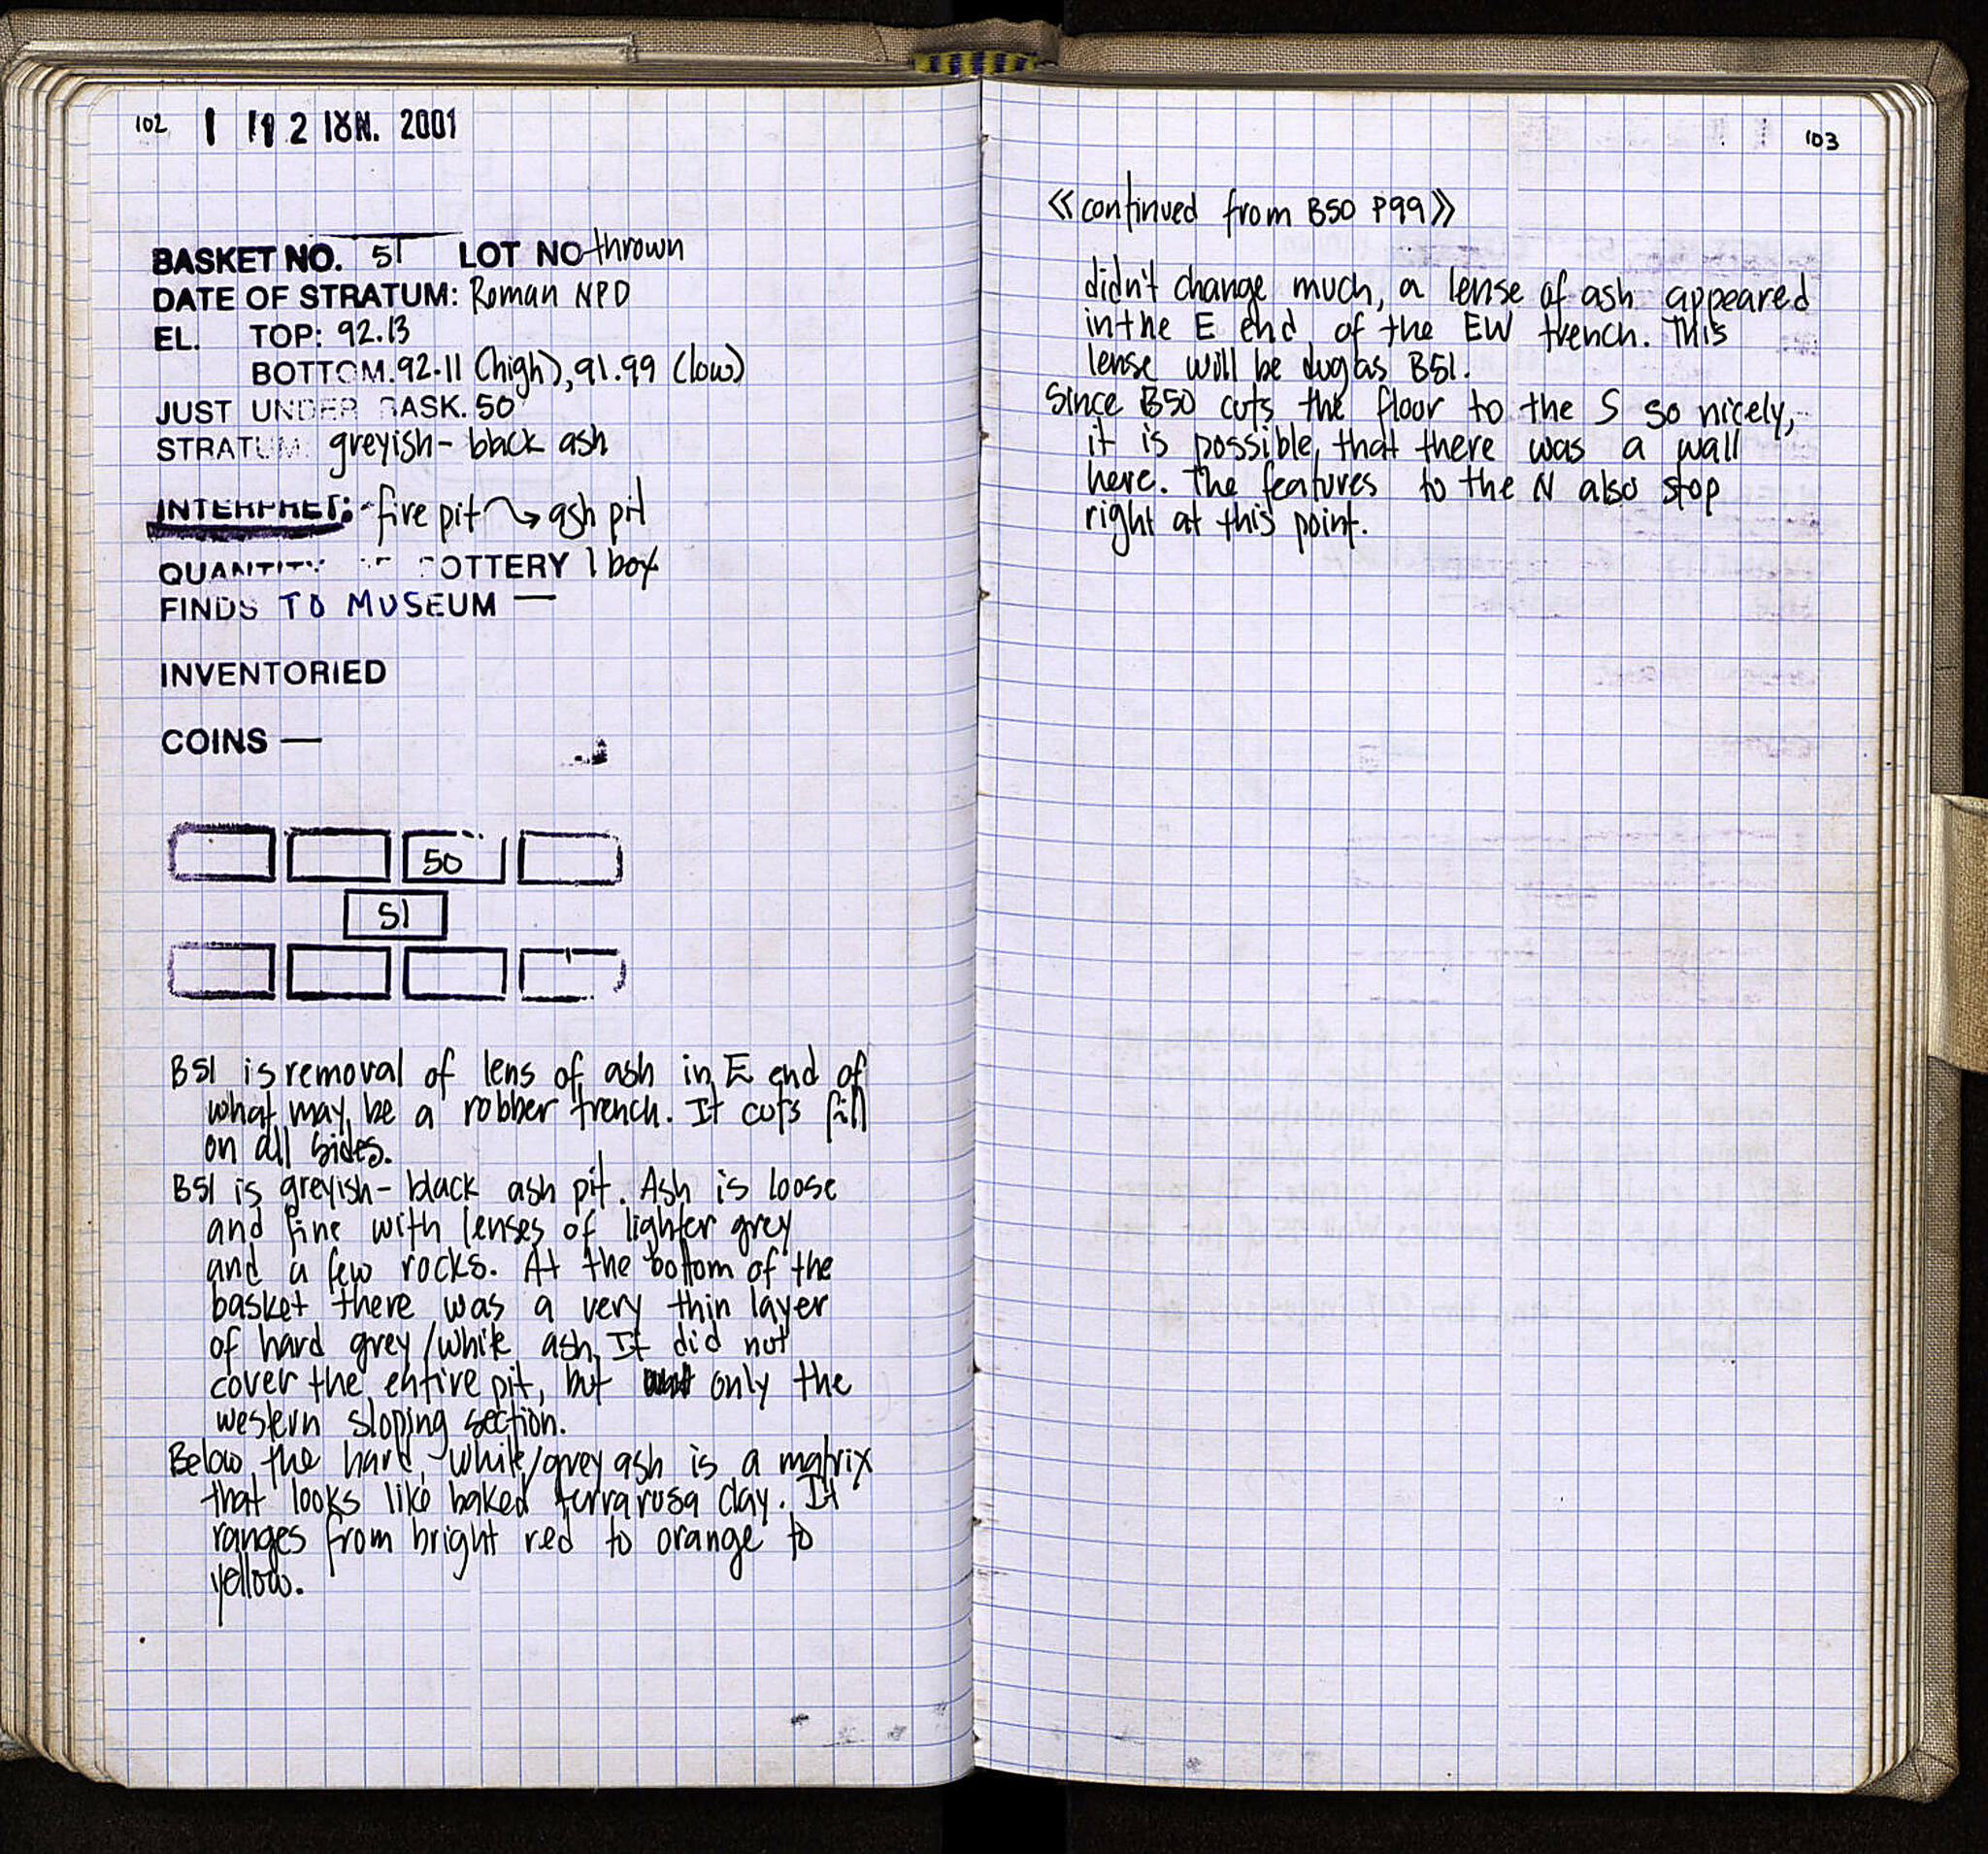 102
2001
BASKET NO. 51 LOT NO thrown
DATE OF STRATUM: Roman NPD
EL. TOP: 92.13
BOTTOM. 92.11 (high), 91.99 (low)
JUST UNDER BASK. 50
STRATUM greyish-black ash
INTERPRET: fire pit ⤳ ash pit
QUANTITY OF POTTERY 1 box
FINDS TO MUSEUM —
INVENTORIED
COINS —
50
51
B51 is removal of lens of ash in E end of
what may be a robber trench. It cuts fill
on all sides.
B51 is greyish-black ash pit. Ash is loose
and fine with lenses of lighter grey
and a few rocks. At the bottom of the
basket there was a very thin layer
of hard grey/white ash. It did not
cover the entire pit, but only the
western sloping section.
Below the hard white/grey ash is a matrix
that looks like baked terrarosa clay. It
ranges from bright red to orange to
yellow.
103
«continued from B50 P99»
didn't change much, a lense of ash appeared
in the E end of the EW trench. This
lense will be dug as B51.
Since B50 cuts the floor to the S so nicely,
it is possible, that there was a wall
here. The features to the N also stop
right at this point.